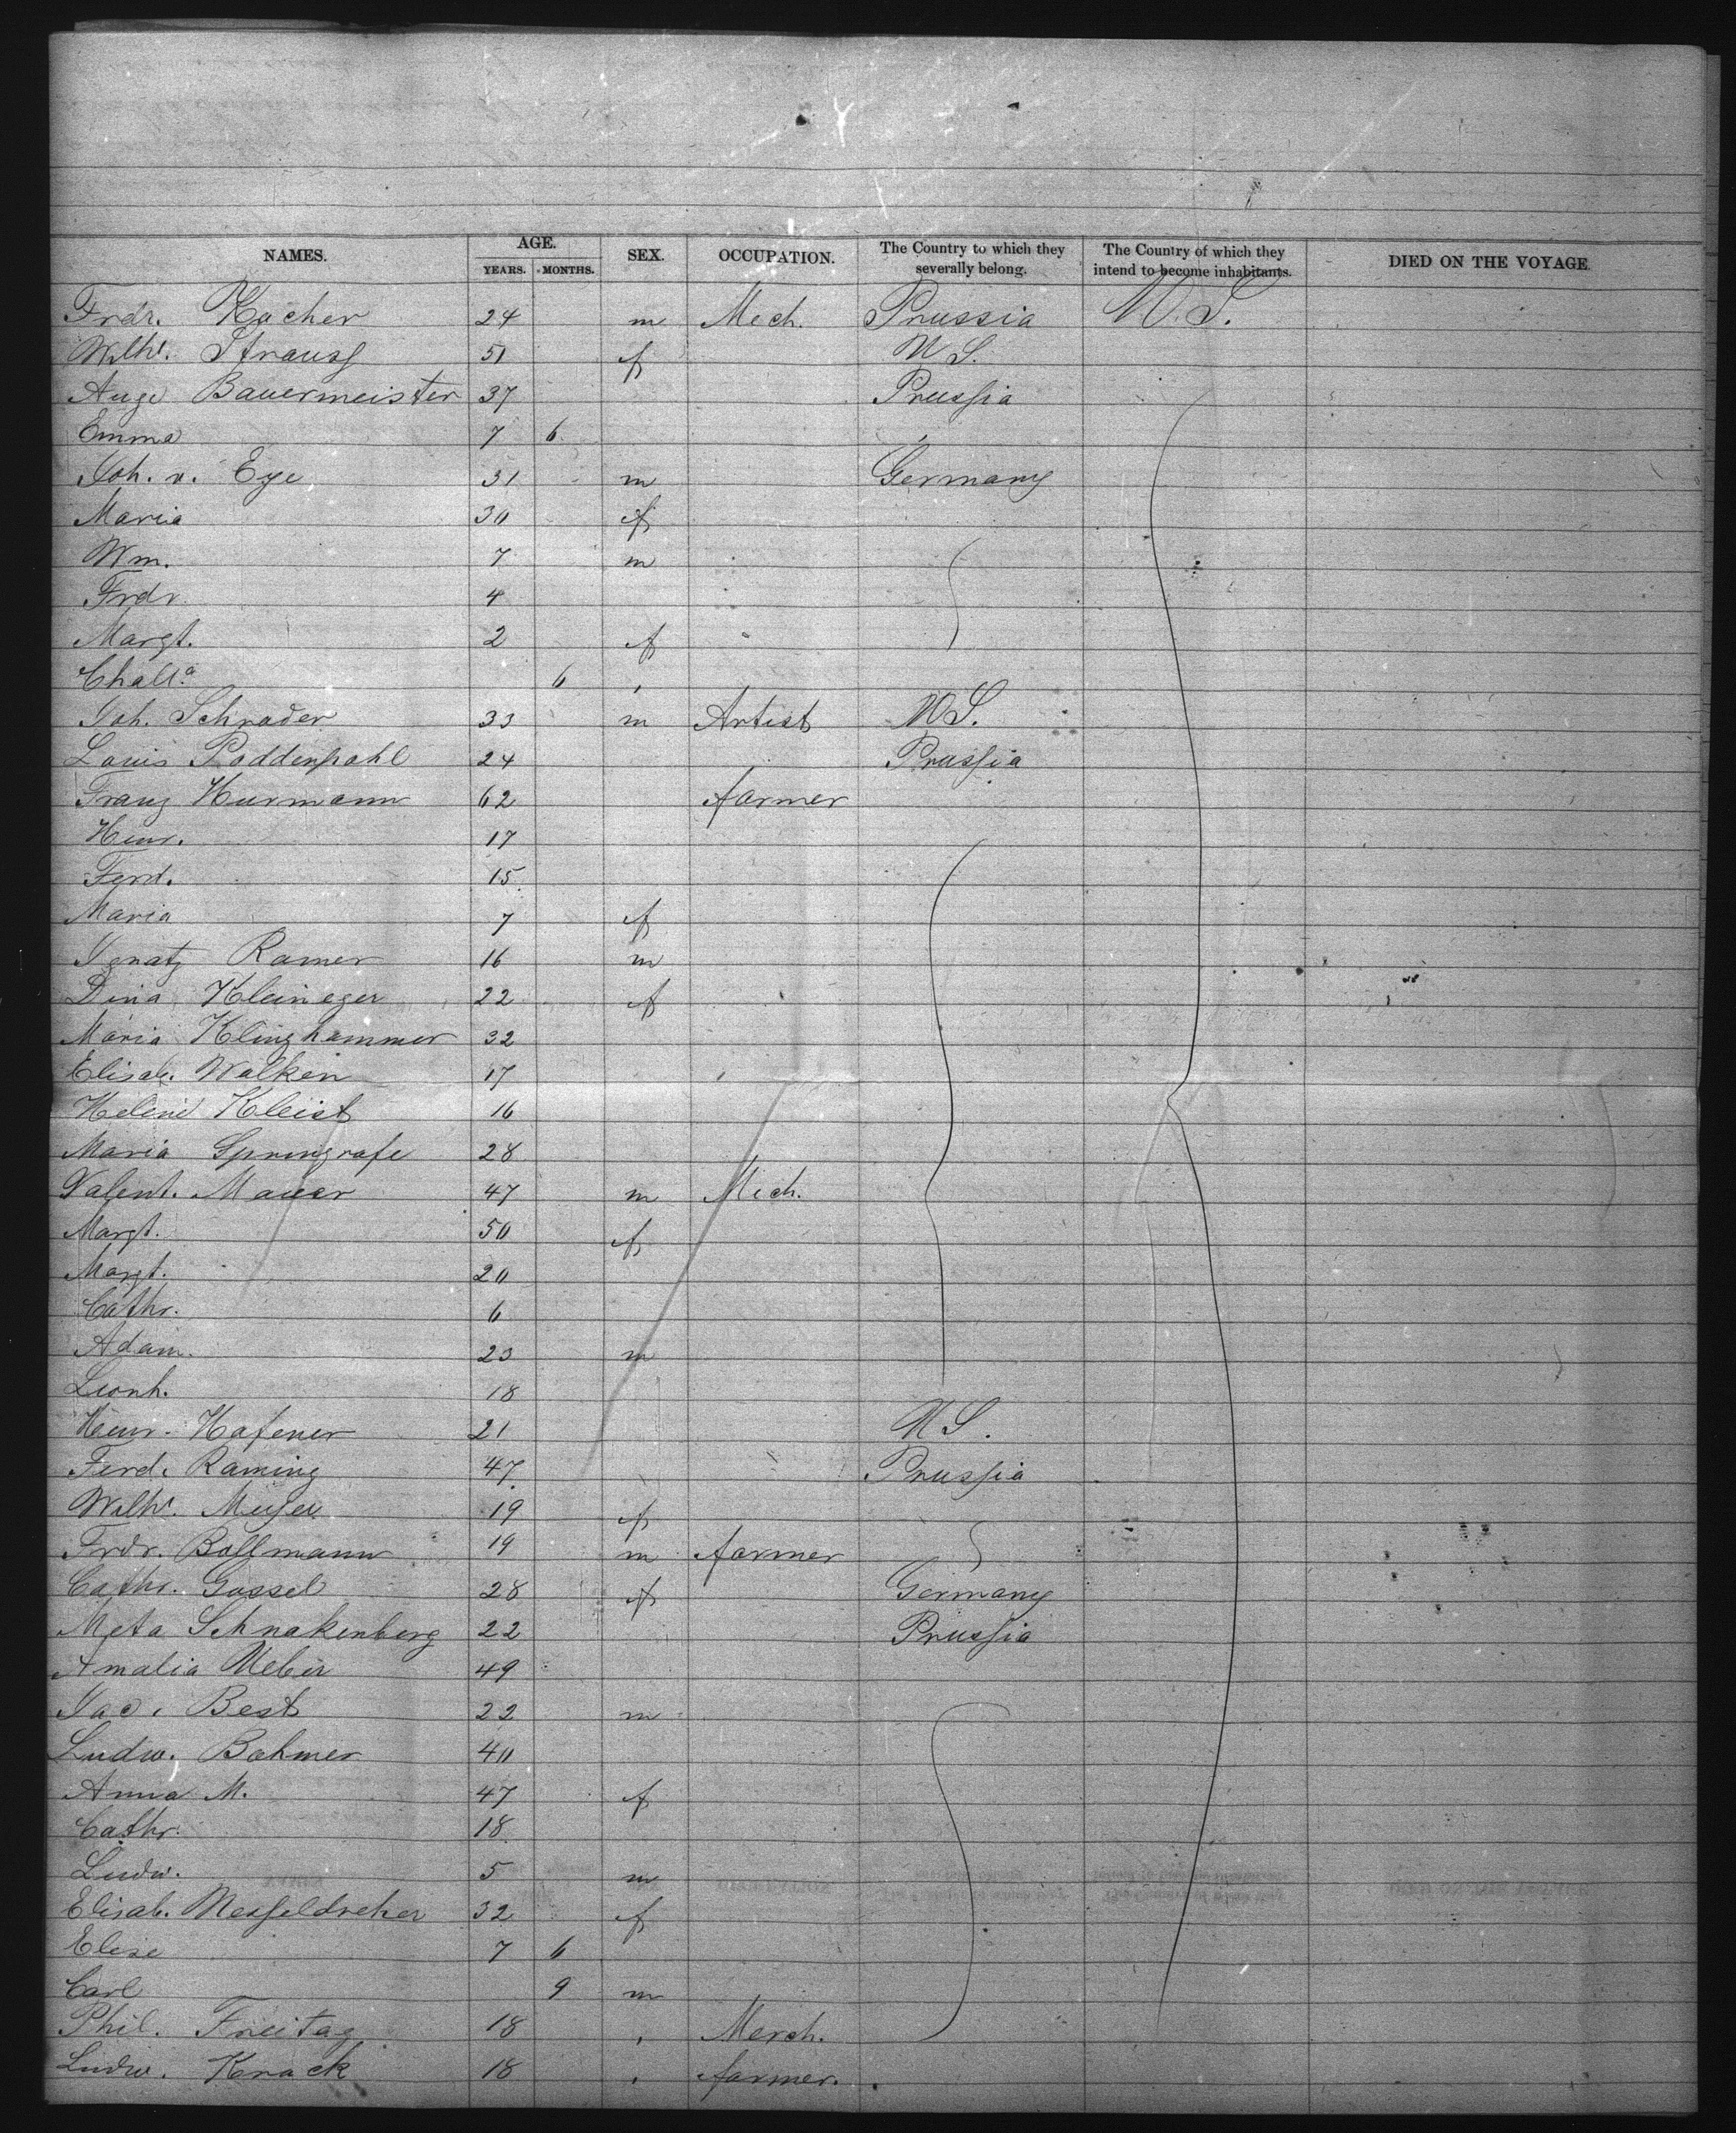 NAMES. AGE. SEX. OCCUPATION. The Country to which they severally belong. The Country of which they intend to become inhabitants. DIED ON THE VOYAGE.
YEARS. MONTHS.
Frdr. Kocher 24 m Mech. Prussia U.S.
Wilhe. Strauss 51 f U.S.
Auge Bauermeister 37 Prussia
Emma 7 6
Joh. v. Eye 31 m Germany
Maria 30 f
Wm. 7 m
Frdr. 4
Margt. 2 f
6
Joh. Schrader 33 m Artist U.S.
Louis Poddenpohl 24 Prussia
Franz Hurmann 62 farmer
Heinr. 17
Ferd. 15
Maria 7 f
Ignatz Ramer 16 m
Dina Kleineger 22 f
Maria Klinghammer 32
Elisab. Walken 17
Helene Kleist 16
Maria 28
Valent. Mauer 47 m Mech.
Margt. 50 f
Margt. 20
Cathr. 6
Adam. 23 m
Leonh. 18
Heinr. Hafener 21 U.S.
Ferd. Raming 47 Prussia
Wilhe. Meyer 19 f
Frdr. Bollmann 19 m farmer
Cathr. Gossel 28 f Germany
Meta Schnakenberg 22 Prussia
Amalia Weber 49
Jac. Best 22 m
Ludw. Bohmer 40
Anna M. 47 f
Cathr. 18
Ludw. 5 m
Elisab. 32 f
Elise 7 6
Carl 9 m
Phil. Freitag 18 Merch.
Ludw. Knack 18 farmer.